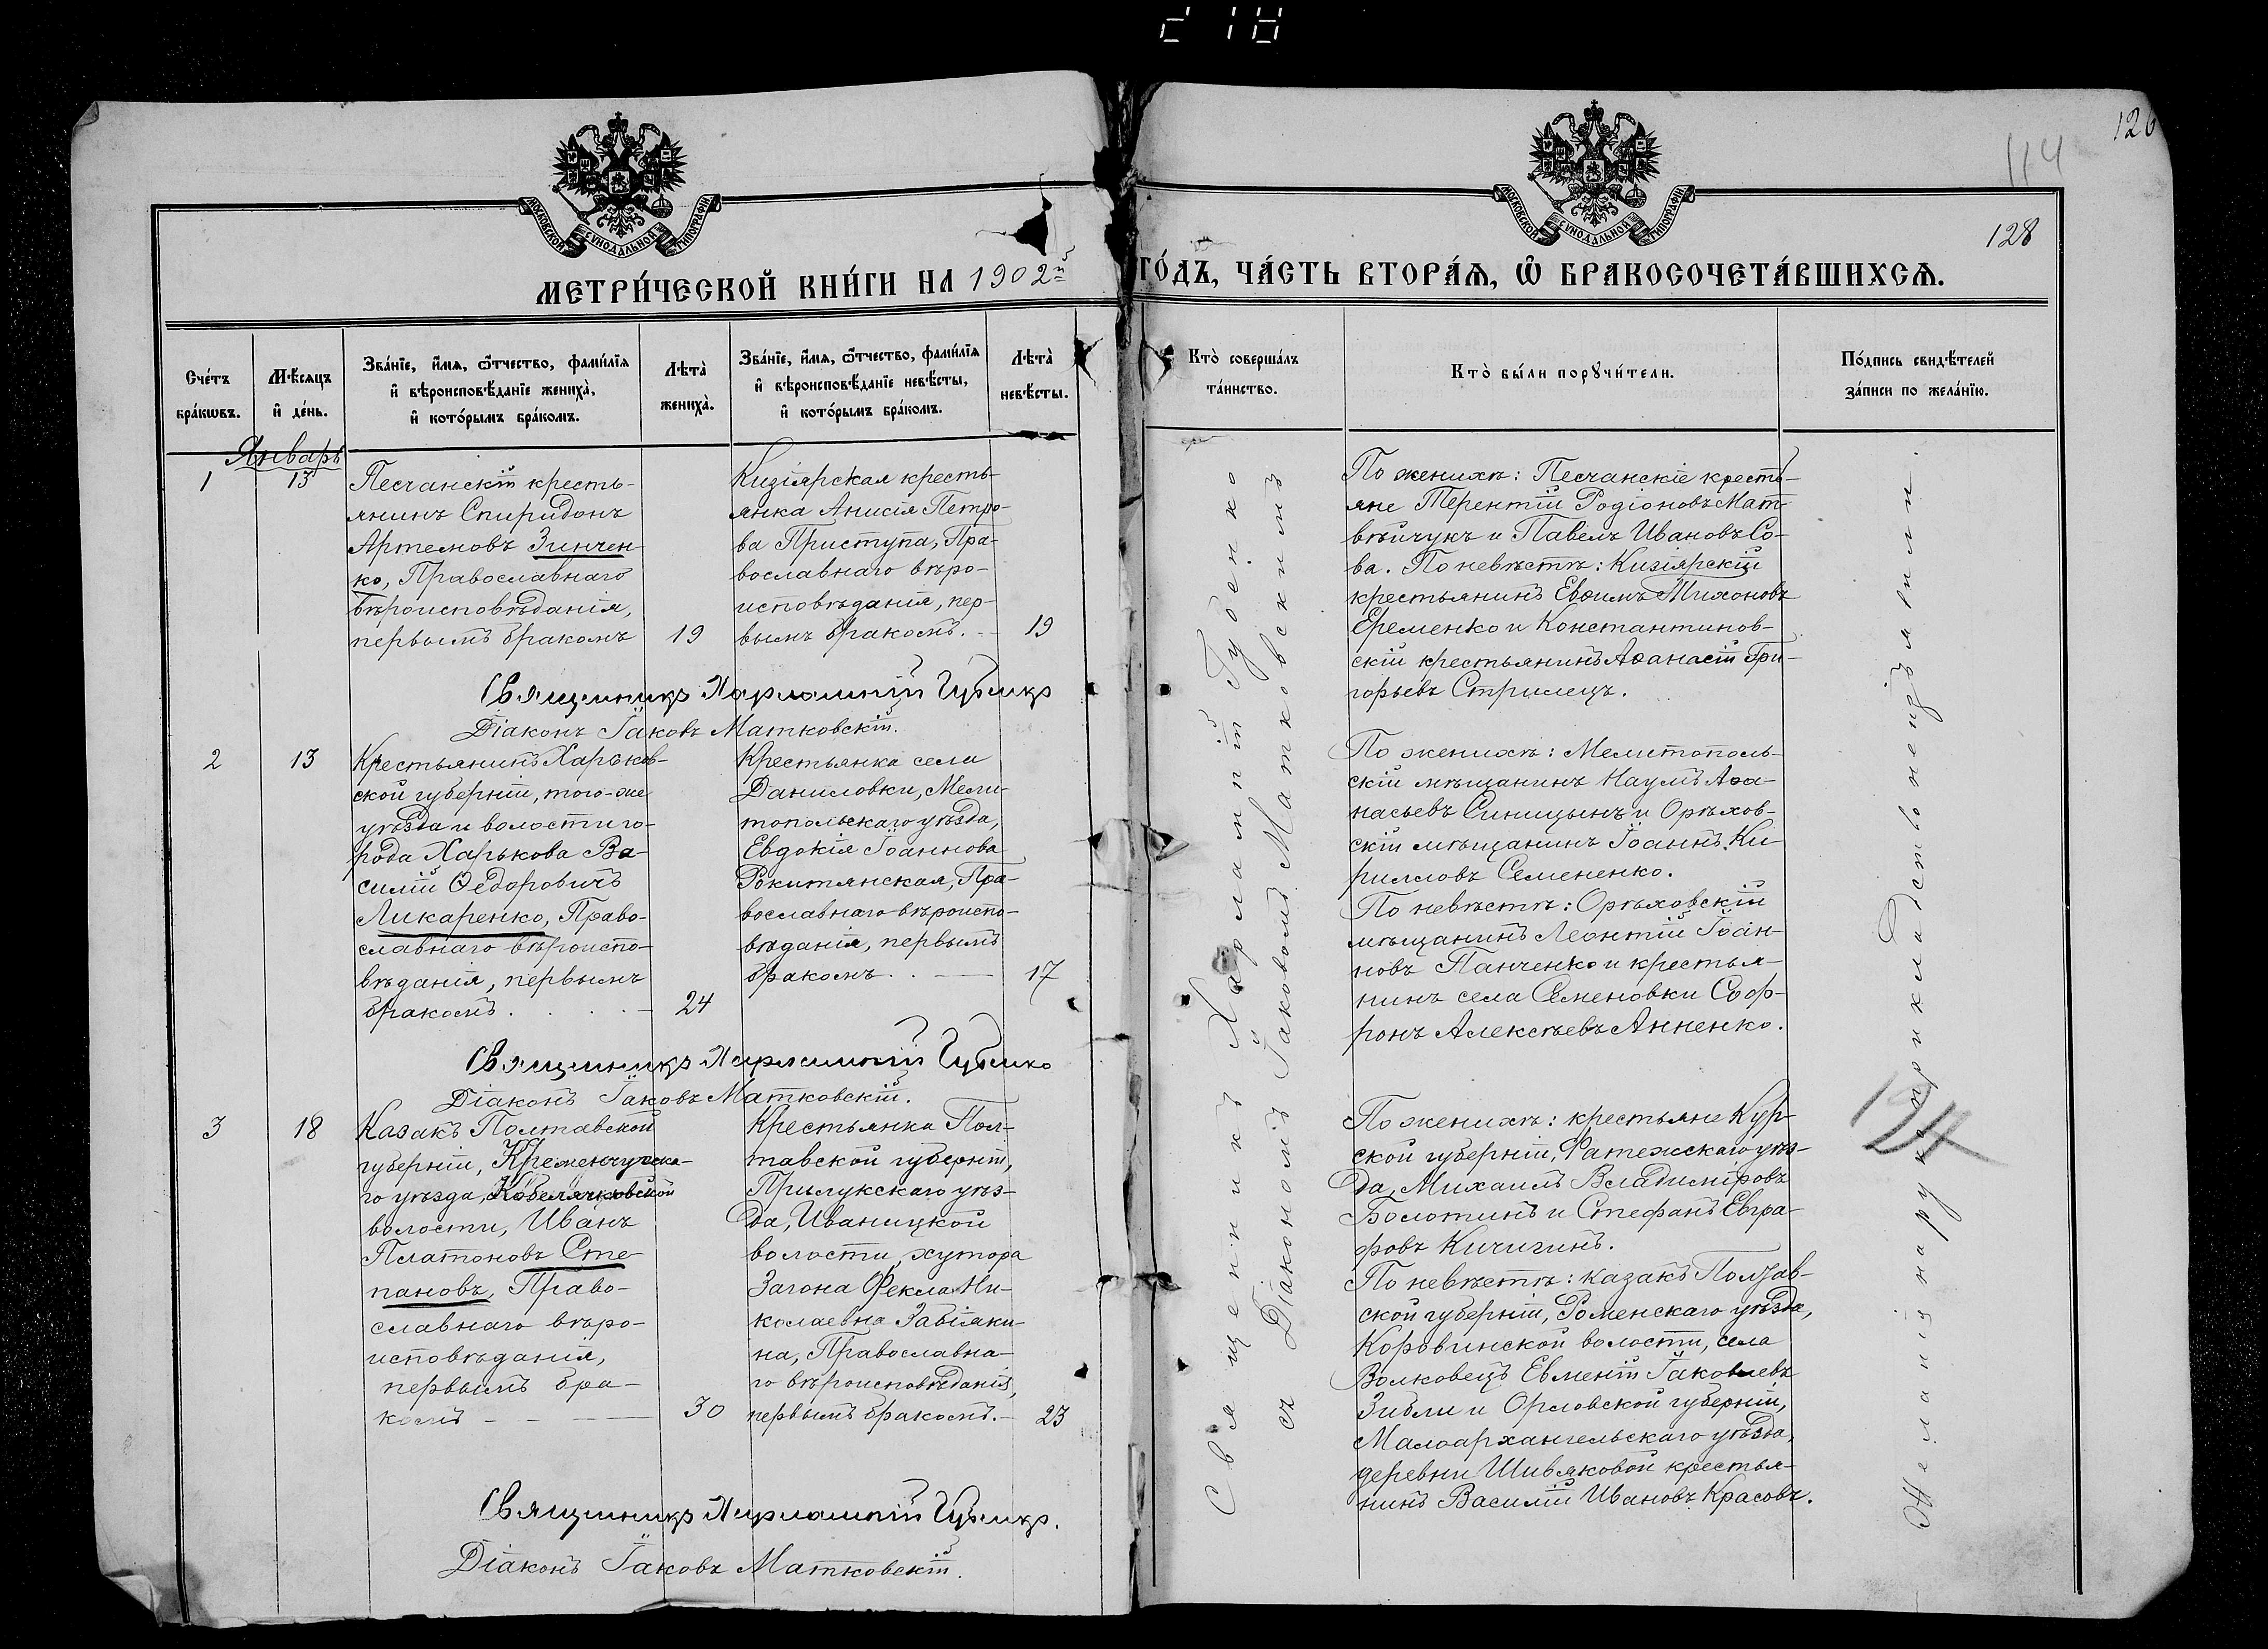 218
126
114
128
МОСКОВСКОЙ СУНОДАЛЬНОЙ ТИПОГРАФІИ
МОСКОВСКОЙ СУНОДАЛЬНОЙ ТИПОГРАФІИ
МЕТРИ́ЧЕСКОЙ КНИ́ГИ НА 1902й ГО́ДЪ, ЧА́СТЬ ВТОРА́Ѧ, Ѡ҆ БРАКОСОЧЕТА́ВШИХСѦ.
Сче́тъ
бра́кѡвъ.
Мѣ́сяцъ
и҆ де́нь.
Зва́нїе, и҆́мя, ѻ҆́тчество, фами́лїя
и҆ вѣроисповѣ́данїе жениха̀,
и҆ кото́рымъ бра́комъ.
Лѣ́та̀
жениха̀.
Зва́нїе, и҆́мя, ѻ҆́тчество, фами́лїя
и҆ вѣроисповѣ́данїе невѣ́сты,
и҆ кото́рымъ бра́комъ.
Лѣ́та̀
невѣ́сты.
Кто̀ соверша́лъ
та́инство.
Кто̀ бы́ли порꙋчи́тели.
По́дпись свидѣ́телей
за́писи по жела́нїю.
Январь
1
13
Песчанскій кресть-
янинъ Спиридонъ
Артемовъ Зинчен-
ко, Православнаго
вѣроисповѣданія,
первымъ бракомъ
19
Кизіярская кресть-
янка Анисія Петро-
ва Приступа, Пра-
вославнаго вѣро-
исповѣданія, пер-
вымъ бракомъ. -
19
По женихѣ: Песчанскіе кресть-
яне Терентій Родіоновъ Мат-
вѣйчукъ и Павелъ Ивановъ Со-
ва. По невѣстѣ: Кизіярскій
крестьянинъ Евѳимъ Тихоновъ
Еременко и Константинов-
скій крестьянинъ Аѳанасій Гри-
горьевъ Стрилецъ.
Священникъ Харлампій Губенко
Діаконъ Іаковъ Матковскій.
2
13
Крестьянинъ Харьков-
ской губерніи, того-же
уѣзда и волости го-
рода Харькова Ва-
силій Ѳедоровичъ
Ликаренко, Право-
славнаго вѣроиспо-
вѣданія, первымъ
бракомъ . . . . -
24
Крестьянка села
Даниловки, Мели-
топольскаго уѣзда,
Евдокія Іоаннова
Рокитянская, Пра-
вославнаго вѣроиспо-
вѣданія, первымъ
бракомъ . . -
17
По женихѣ: Мелитополь-
скій мѣщанинъ Наумъ Аѳа-
насьевъ Синицынъ и Орѣхов-
скій мѣщанинъ Іоаннъ Ки-
рилловъ Семененко.
По невѣстѣ: Орѣховскій
мѣщанинъ Леонтій Іоан-
новъ Панченко и крестья-
нинъ села Семеновки Соф-
ронъ Алексѣевъ Анненко.
Священникъ Харлампій Губенко
Діаконъ Іаковъ Матковскій.
3
18
Казакъ Полтавской
губерніи, Кременчугска-
го уѣзда, Кобелячковской
волости, Иванъ
Платоновъ Сте-
пановъ, Право-
славнаго вѣро-
исповѣданія,
первымъ бра-
комъ - - - -
30
Крестьянка Пол-
тавской губерніи,
Прилукскаго уѣз-
да, Иваницкой
волости, хутора
Загона Фекла Ни-
колаевна Забіяки-
на, Православна-
го вѣроисповѣданія,
первымъ бракомъ. -
23
По женихѣ: крестьяне Кур-
ской губерніи, Фатежскаго уѣз-
да, Михаилъ Владиміровъ
Болотинъ и Стефанъ Евгра-
фовъ Кичигинъ.
По невѣстѣ: казакъ Полтав-
ской губерніи, Роменскаго уѣзда,
Коровинской волости, села
Волковецъ Евментій Іаковлевъ
Зибли и Орловской губерніи,
Малоархангельскаго уѣзда,
деревни Шивяковой крестья-
нинъ Василій Ивановъ Красовъ.
Священникъ Харлампій Губенко.
Діаконъ Іаковъ Матковскій.
Священникъ Харлампій Губенко
съ Діакономъ Іаковомъ Матковскимъ
Желанія на рукоприкладство неизъявили.
124